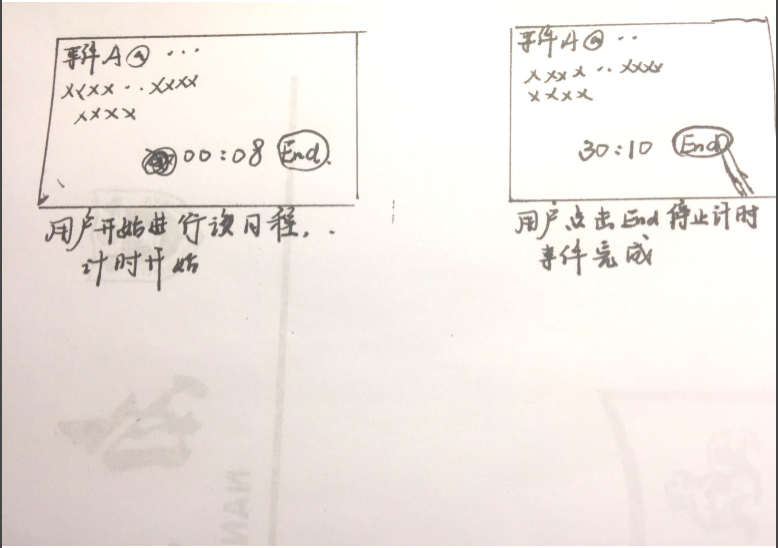 事件A@ ...
xxxx..xxxx
xxxx
00:08 End.
用户开始进行该日程,..
计时开始
事件A@ ..
xxxx..xxxx
xxxx
30:10 End
用户点击End停止计时
事件完成
NAN